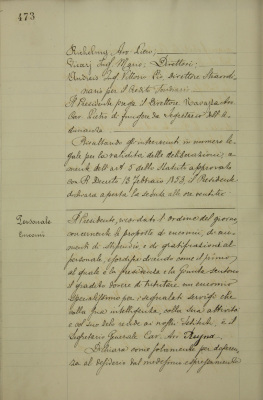 473
Direttori.
Vice Direttore
naris per il Credito Fondiario
Il Presidente prega il Direttore
Cav. Pietro di fungere da Segretario dell'A-
dunanza
Risultando gli intervenuti in numero le-
gale per la validità delle deliberazioni, a
mente dell'art. 5 dello Statuto approvato
con R. Decreto 13 Febbraio 1893 il Presidente
dichiara aperta la seduta alle ore
Personale
Encomi
Il Presidente, ricordato l'ordine del giorno
concernente le proposte di encomi, di au-
menti di stipendio e di gratificazioni al
personale, esordisce dicendo come il primo
al quale e la presidenza e la Giunta sentono
il gradito dovere di tributare un encomio
specialissimo per i segnalati servigi che
colla sua intelligenza, colla sua attività
e col suo zelo rende ai nostri Istituti, è il
Segretario Generale Cav. Avv.
Dichiara come solamente per deferen-
za al desiderio dal medesimo espressamente